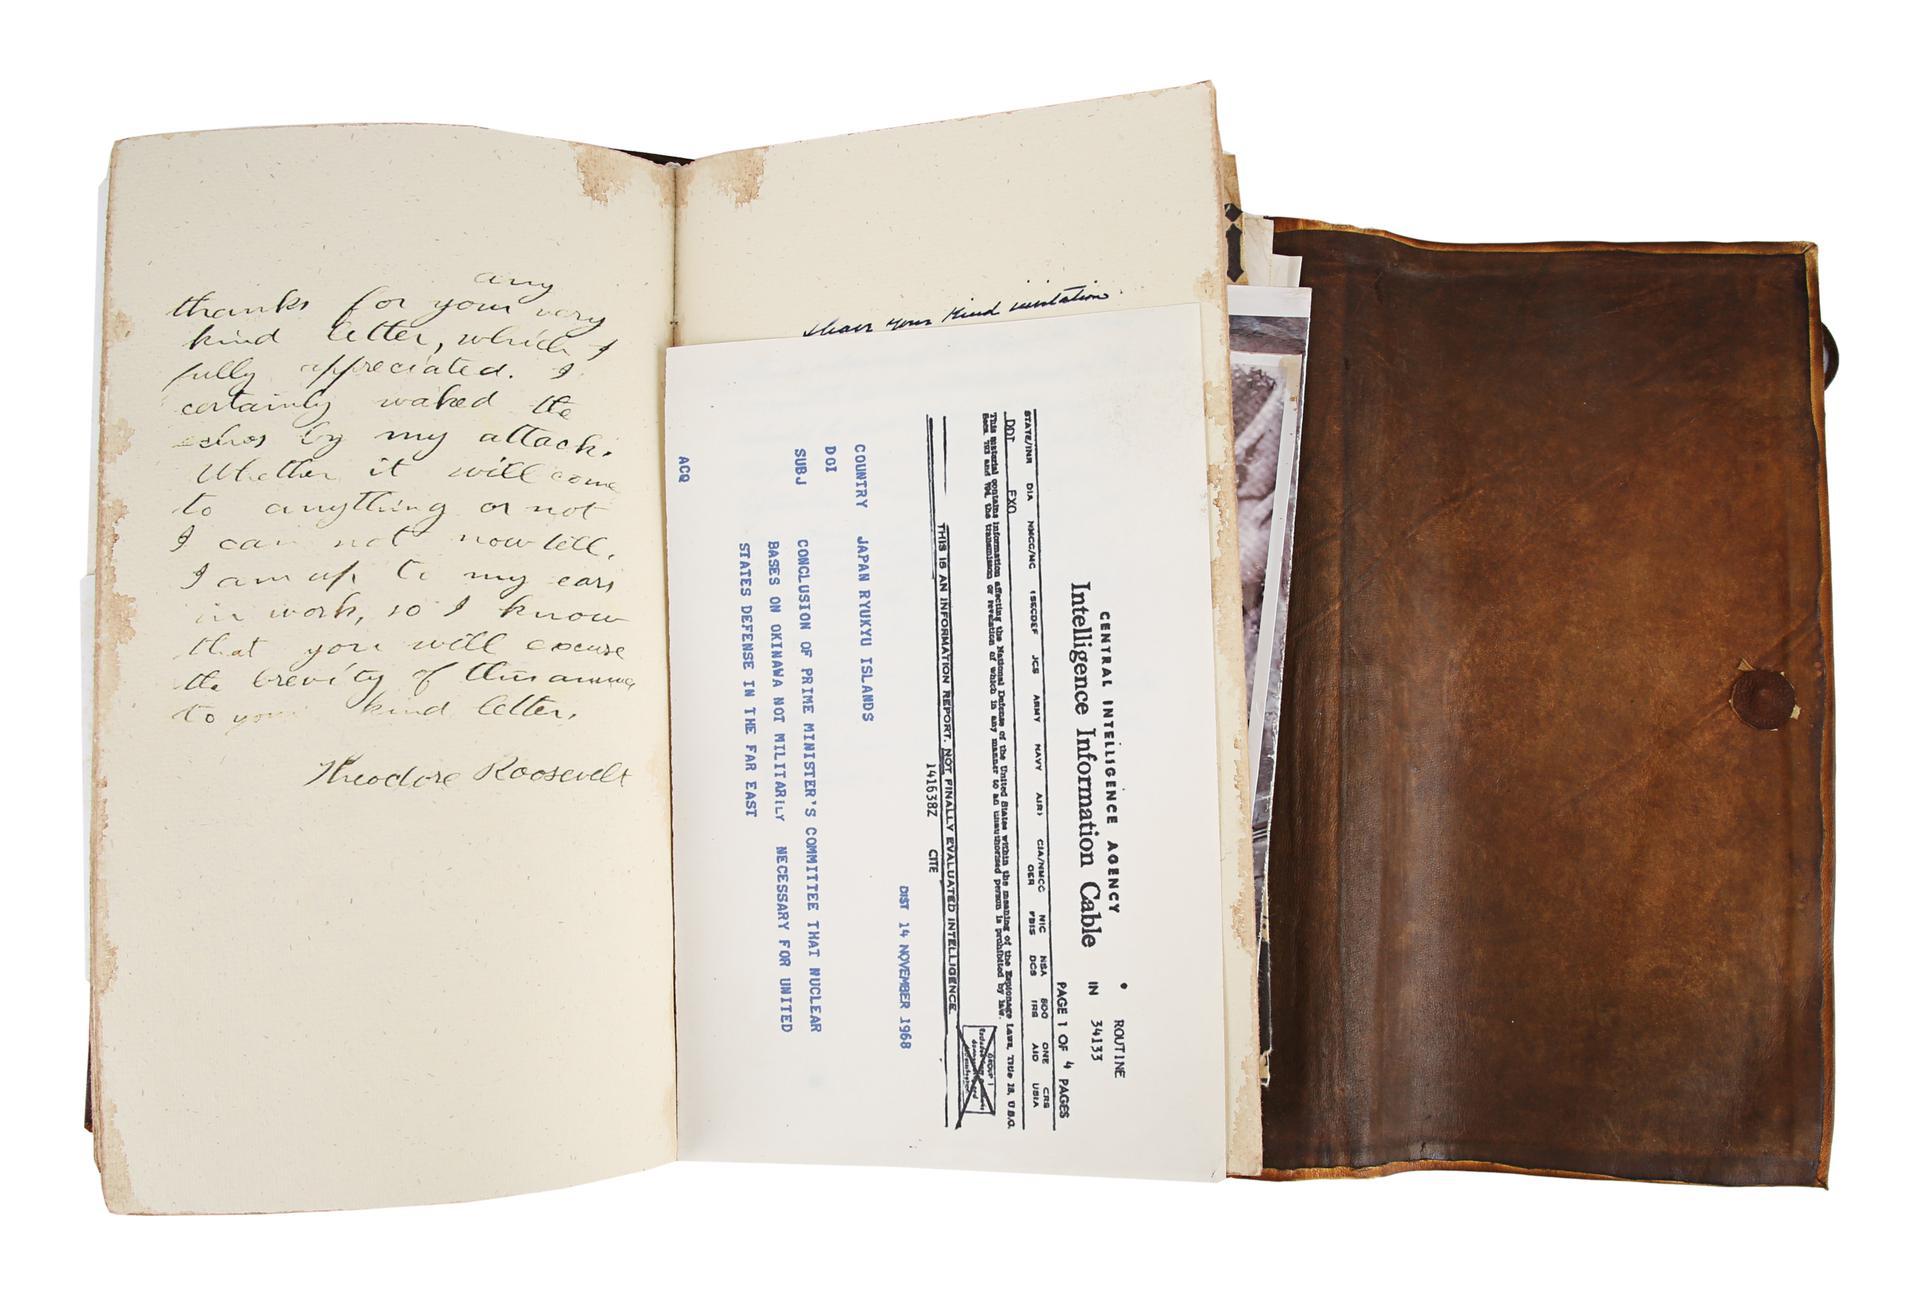 any
thanks for your very
kind letter, which I
fully appreciated. I
certainly waked the
echos by my attack.
Whether it will come
to anything or not
I can not now tell.
I am up to my ears
in work, so I know
that you will excuse
the brevity of this answer
to your kind letter.
Theodore Roosevelt
your kind invitation
CENTRAL INTELLIGENCE AGENCY
• ROUTINE
Intelligence Information Cable
IN 34133
PAGE 1 OF 4 PAGES
STATE/INR DIA NMCC/MC (SECDEF JCS ARMY NAVY AIR) CIA/NMCC NIC NSA SOO ONE CRS
DDI EXO OER FBIS DCS IRS AID USIA
This material contains information affecting the National Defense of the United States within the meaning of the Espionage Laws, Title 18, U.S.C.
Secs. 793 and 794, the transmission or revelation of which in any manner to an unauthorized person is prohibited by law.
GROUP 1
THIS IS AN INFORMATION REPORT, NOT FINALLY EVALUATED INTELLIGENCE.
141638Z CITE
DIST 14 NOVEMBER 1968
COUNTRY JAPAN RYUKYU ISLANDS
DOI
SUBJ CONCLUSION OF PRIME MINISTER'S COMMITTEE THAT NUCLEAR
BASES ON OKINAWA NOT MILITARILY NECESSARY FOR UNITED
STATES DEFENSE IN THE FAR EAST
ACQ